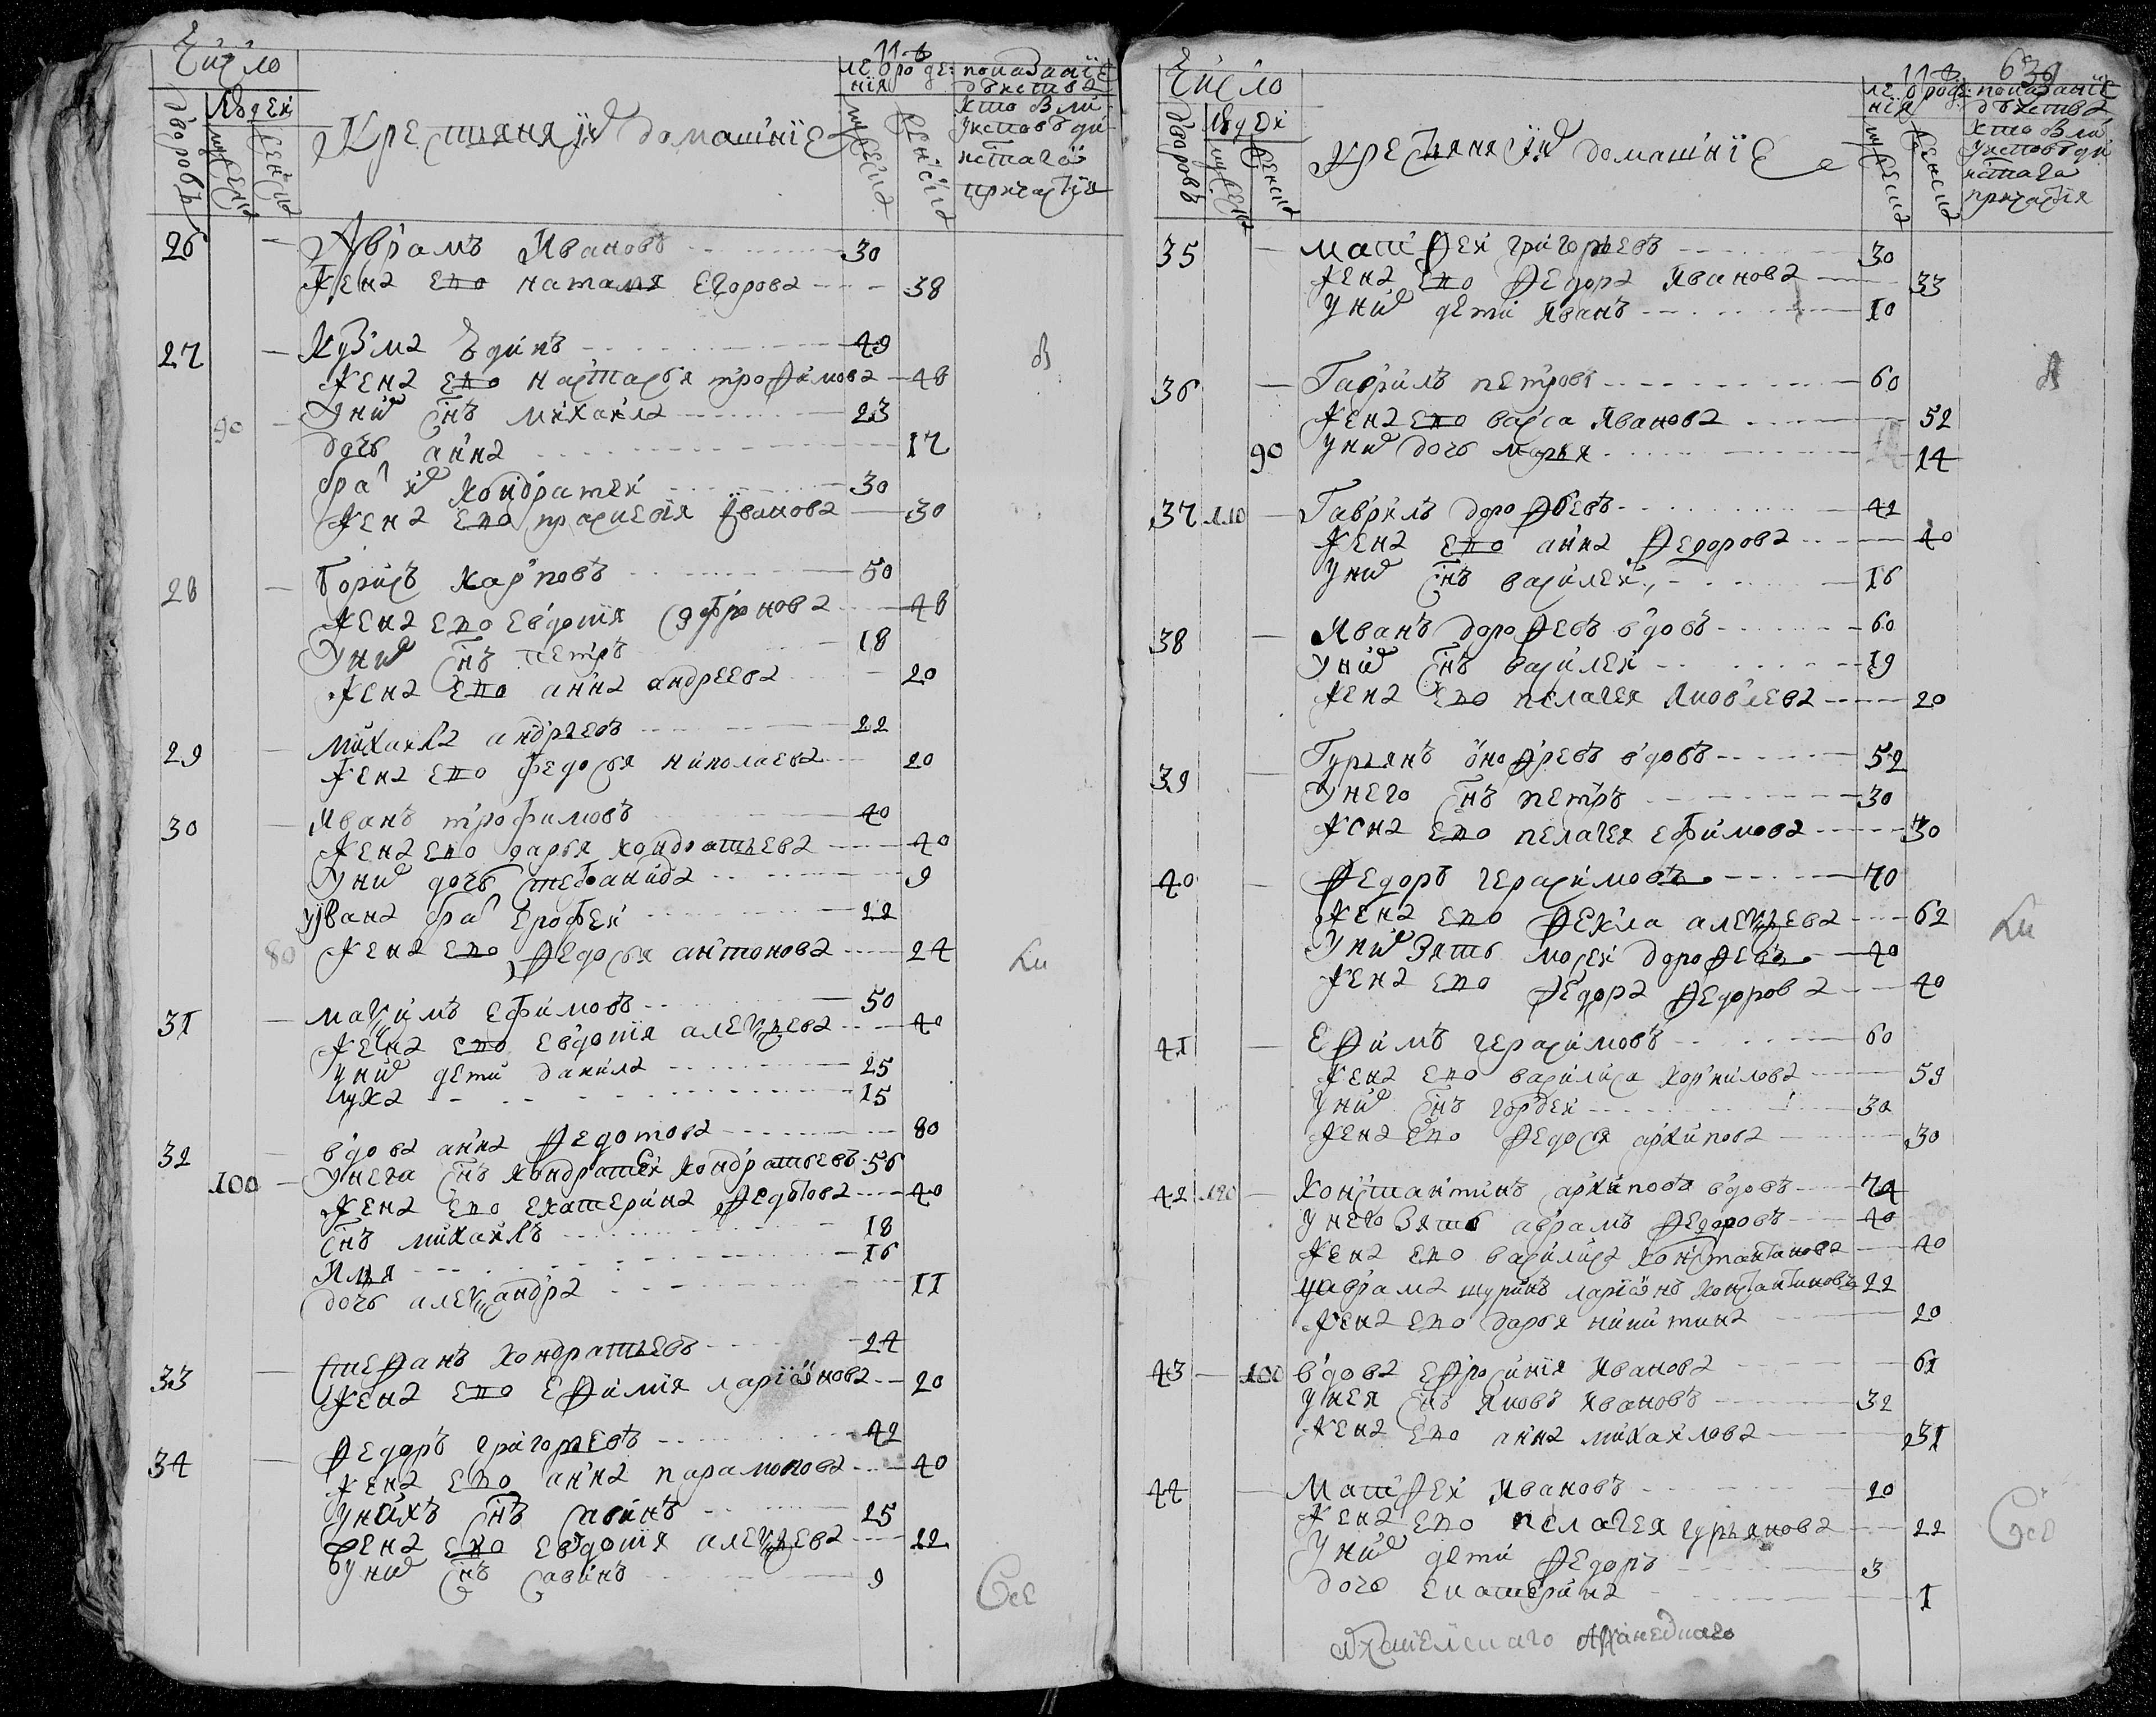 Число
дворовъ
людеи
мужеска
женска
Крестьяня ихъ домашнїе
лѣ
нїя
мужеска
женска
показанїе
хто были
у исповѣди
причастїя
26 Аврамъ Ивановъ 30
жена ево наталя егорова 38
27 Кузма 49
жена ево настасья трофимова 48
у них снъ михаила 23
90
дочь анна 17
бра их кондратеи 30
жена ево праскевїя иванова 30
28 Борисъ карповъ 50
жена ево евдотїя софронова 48
у них снъ петръ 18
жена ево анна андреева 20
29 михаила андрѣевъ 22
жена ево федосья николаева 20
30 иванъ трофимовъ 40
жена ево дарья кондратьева 40
у них дочь стефанида 9
у ивана бра ерофеи 22
80 жена ево федосья антонова 24
31 максимъ ефимовъ 50
жена ево евдотїя алексѣева 40
у них дети данила 25
лука 15
32 вдова анна федотова 80
100 у нега снъ кондратеи кондратьевъ 56
жена ево екатерина федотова 40
снъ михаила 18
илья 16
дочь александра 11
33 стефанъ кондратьевъ 24
жена ево ефимїя ларїѡнова 20
34 федоръ григорьевъ 42
жена ево анна парамонова 40
у нихъ снъ савинъ 25
жена ево евдотїя алексѣева 22
у них снъ савинъ 9
Все
Число
дворовъ
людеи
мужеска
женска
Крестьяня ихъ домашнїе
639
лѣ
нїя
мужеска
женска
показанїе
хто были
у исповѣди
причастїя
35 матфеи григорьевъ 30
жена ево федора иванова 33
у них дети иванъ 10
36 Гаврилъ петровъ 60
жена ево васса иванова 52
90 у них дочь марья 14
37 110 Гаврилъ дорофѣевъ 42
жена ево анна федорова 40
у них снъ василеи 16
38 Иванъ дорофевъ вдовъ 60
у них снъ василеи 19
жена ево пелагея яковлева 20
39 Гурьянъ ѡнофревъ вдовъ 52
у него снъ петръ 30
жена ево пелагея ефимова 30
40 федоръ герасимовъ 70
жена ево фекла алексѣева 62
у них зять мосеи дорофевъ 40
жена ево федора федорова 40
41 Ефимъ герасимовъ 60
жена ево василиса корнилова 59
у них снъ гордеи 30
жена ево федося архипова 30
42 120 Константинъ архиповъ вдовъ 74
у него зять аврамъ федоровъ 40
жена ево василиса константинова 40
у аврама шуринъ ларїѡнъ константиновъ 22
жена ево дарья никитина 20
43 100 вдова ефросинїя иванова 61
у нея снъ яковъ ивановъ 32
жена ево анна михаилова 31
44 Матфеи ивановъ 20
жена ево пелагея гурьянова 22
у них дети федоръ 3
дочь екатерина 1
Все